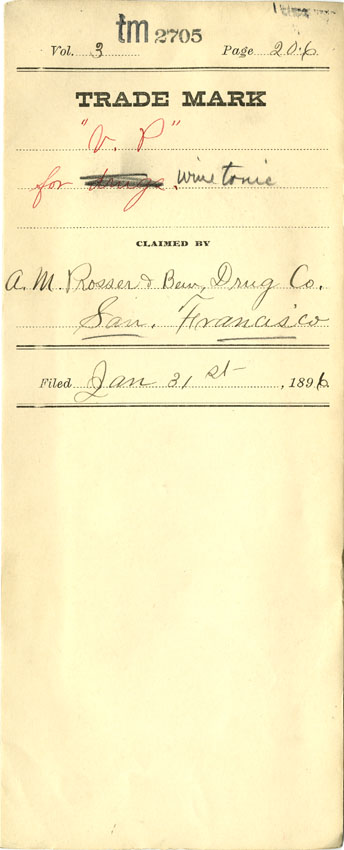 tm 2705
Vol. 3 Page 206
TRADE MARK
"V. P"
for drugs. wine tonic
CLAIMED BY
A. M. Rosser & Bew, Drug Co.
San. Francisco
Filed Jan 31 st , 1896